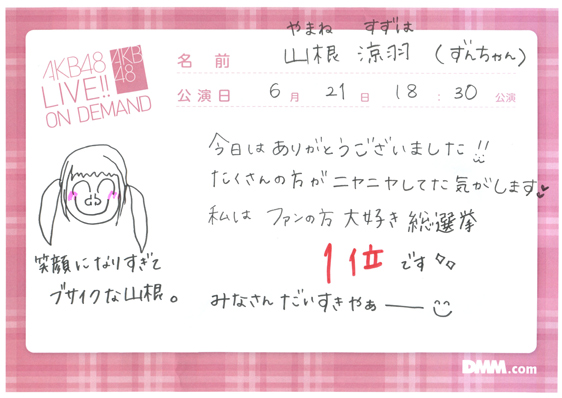 やまね すずは
名前 山根 涼羽 (ずんちゃん)
AKB48
LIVE!!
ON DEMAND
AKB
48
公演日 6月 21日 18:30 公演
今日はありがとうございました!!
たくさんの方がニヤニヤしてた気がします
私は ファンの方 大好き 総選挙
1位です
みなさん だいすきやぁー
笑顔になりすぎて
ブサイクな山根。
DMM.com